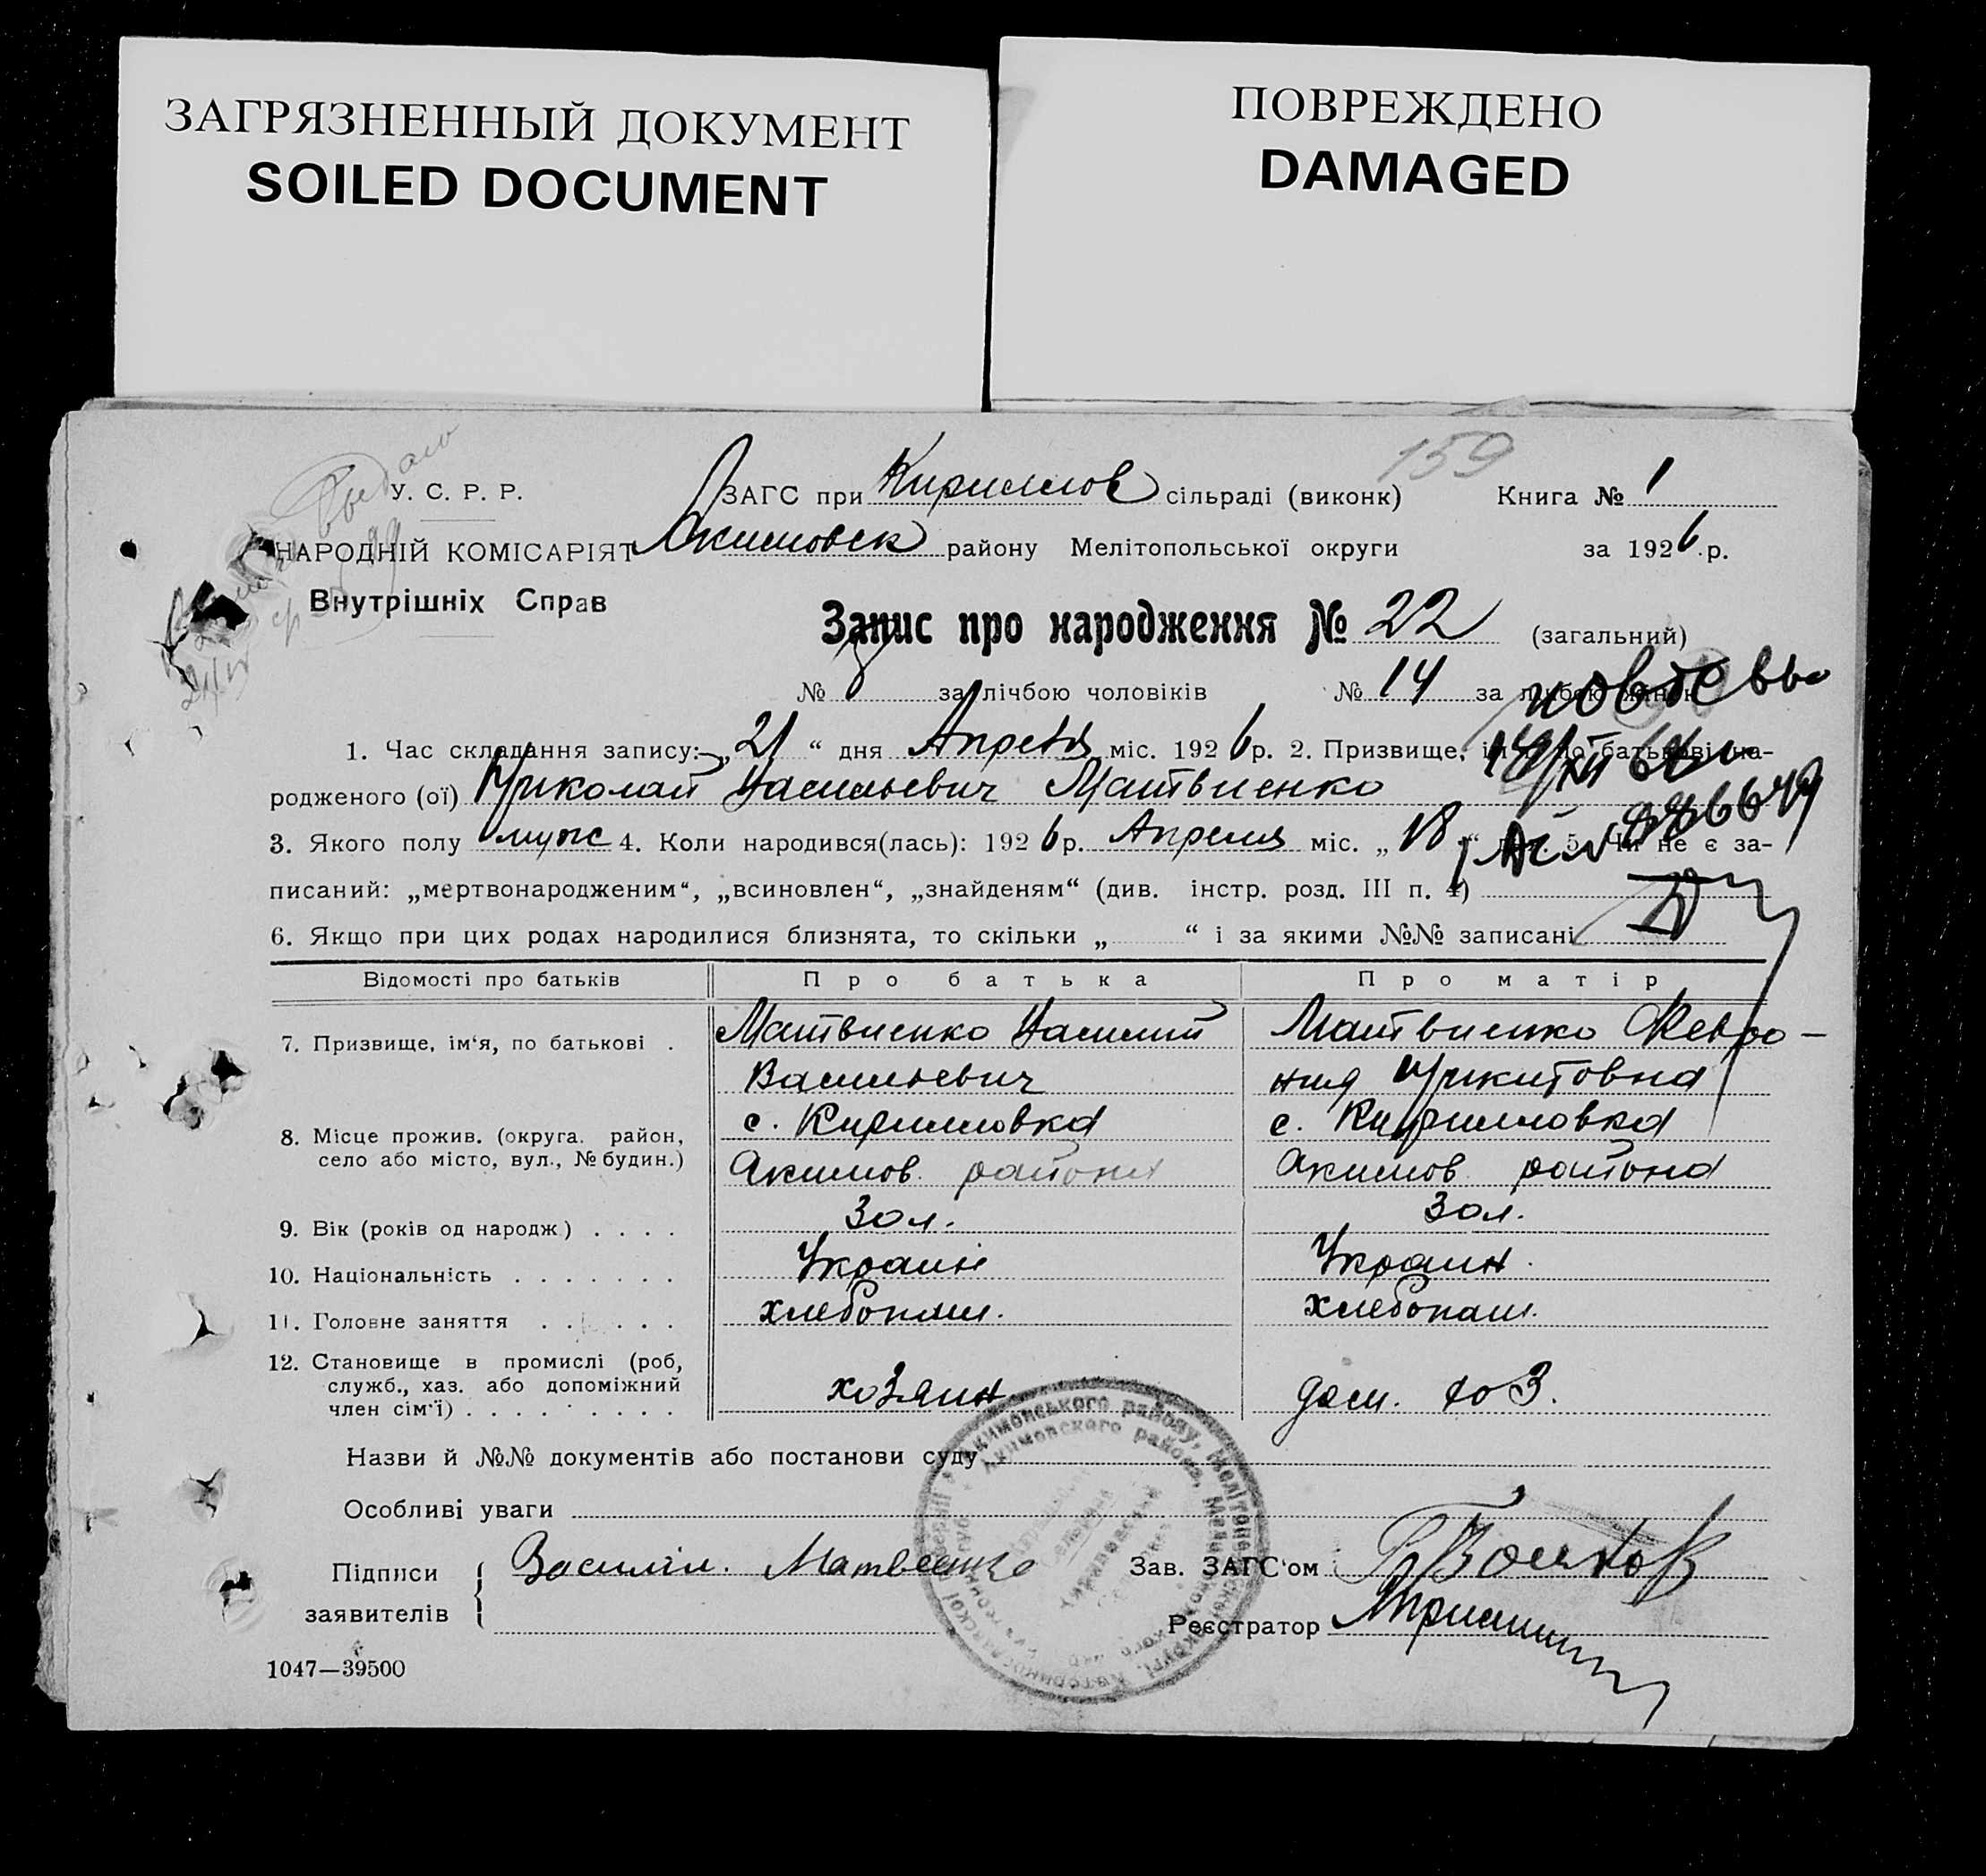 ЗАГРЯЗНЕННЫЙ ДОКУМЕНТ
SOILED DOCUMENT
ПОВРЕЖДЕНО
DAMAGED
159
У. С. Р. Р.
ЗАГС при Кириллов сільраді (виконк) Книга № 1
НАРОДНІЙ КОМІСАРІЯТ Акимовск району Мелітопольської округи за 1926 р.
Внутрішніх Справ
Запис про народження № 22 (загальний)
№ 8 за лічбою чоловіків № 14 за лічбою жінок
повторно
1. Час складання запису: „21“ дня Апреля міс. 1926 р. 2. Призвище, ім'я, по батькові на-
родженого (ої) Николай Васильевич Матвиенко
3. Якого полу муж 4. Коли народився(лась): 1926 р. Апреля міс. „18“ дня. 5. Чи не є за-
писаний: „мертвонародженим“, „всиновлен“, „знайденям“ (див. інстр. розд. III п. 4)
6. Якщо при цих родах народилися близнята, то скільки „ “ і за якими №№ записані
Відомості про батьків Про батька Про матір
7. Призвище, ім‘я, по батькові . Матвиенко Василий Матвиенко Февро-
Васильевич ния Никитовна
8. Місце прожив. (округа. район, с. Кирилловка с. Кирилловка
село або місто, вул., № будин.) Акимов. района Акимов района
9. Вік (років од народж) . . . . 30 л. 30 л.
10. Національність . . . . . . . Украин Украин.
11. Головне заняття . . . . . . хлебопаш. хлебопаш.
12. Становище в промислі (роб,
служб., хаз. або допоміжний хозяин дом. хоз.
член сім‘ї) . . . . . . . . .
Назви й №№ документів або постанови суду
Особливі уваги
Підписи Василий Матвеенко Зав. ЗАГС‘ом
заявителів Реєстратор
1047—39500